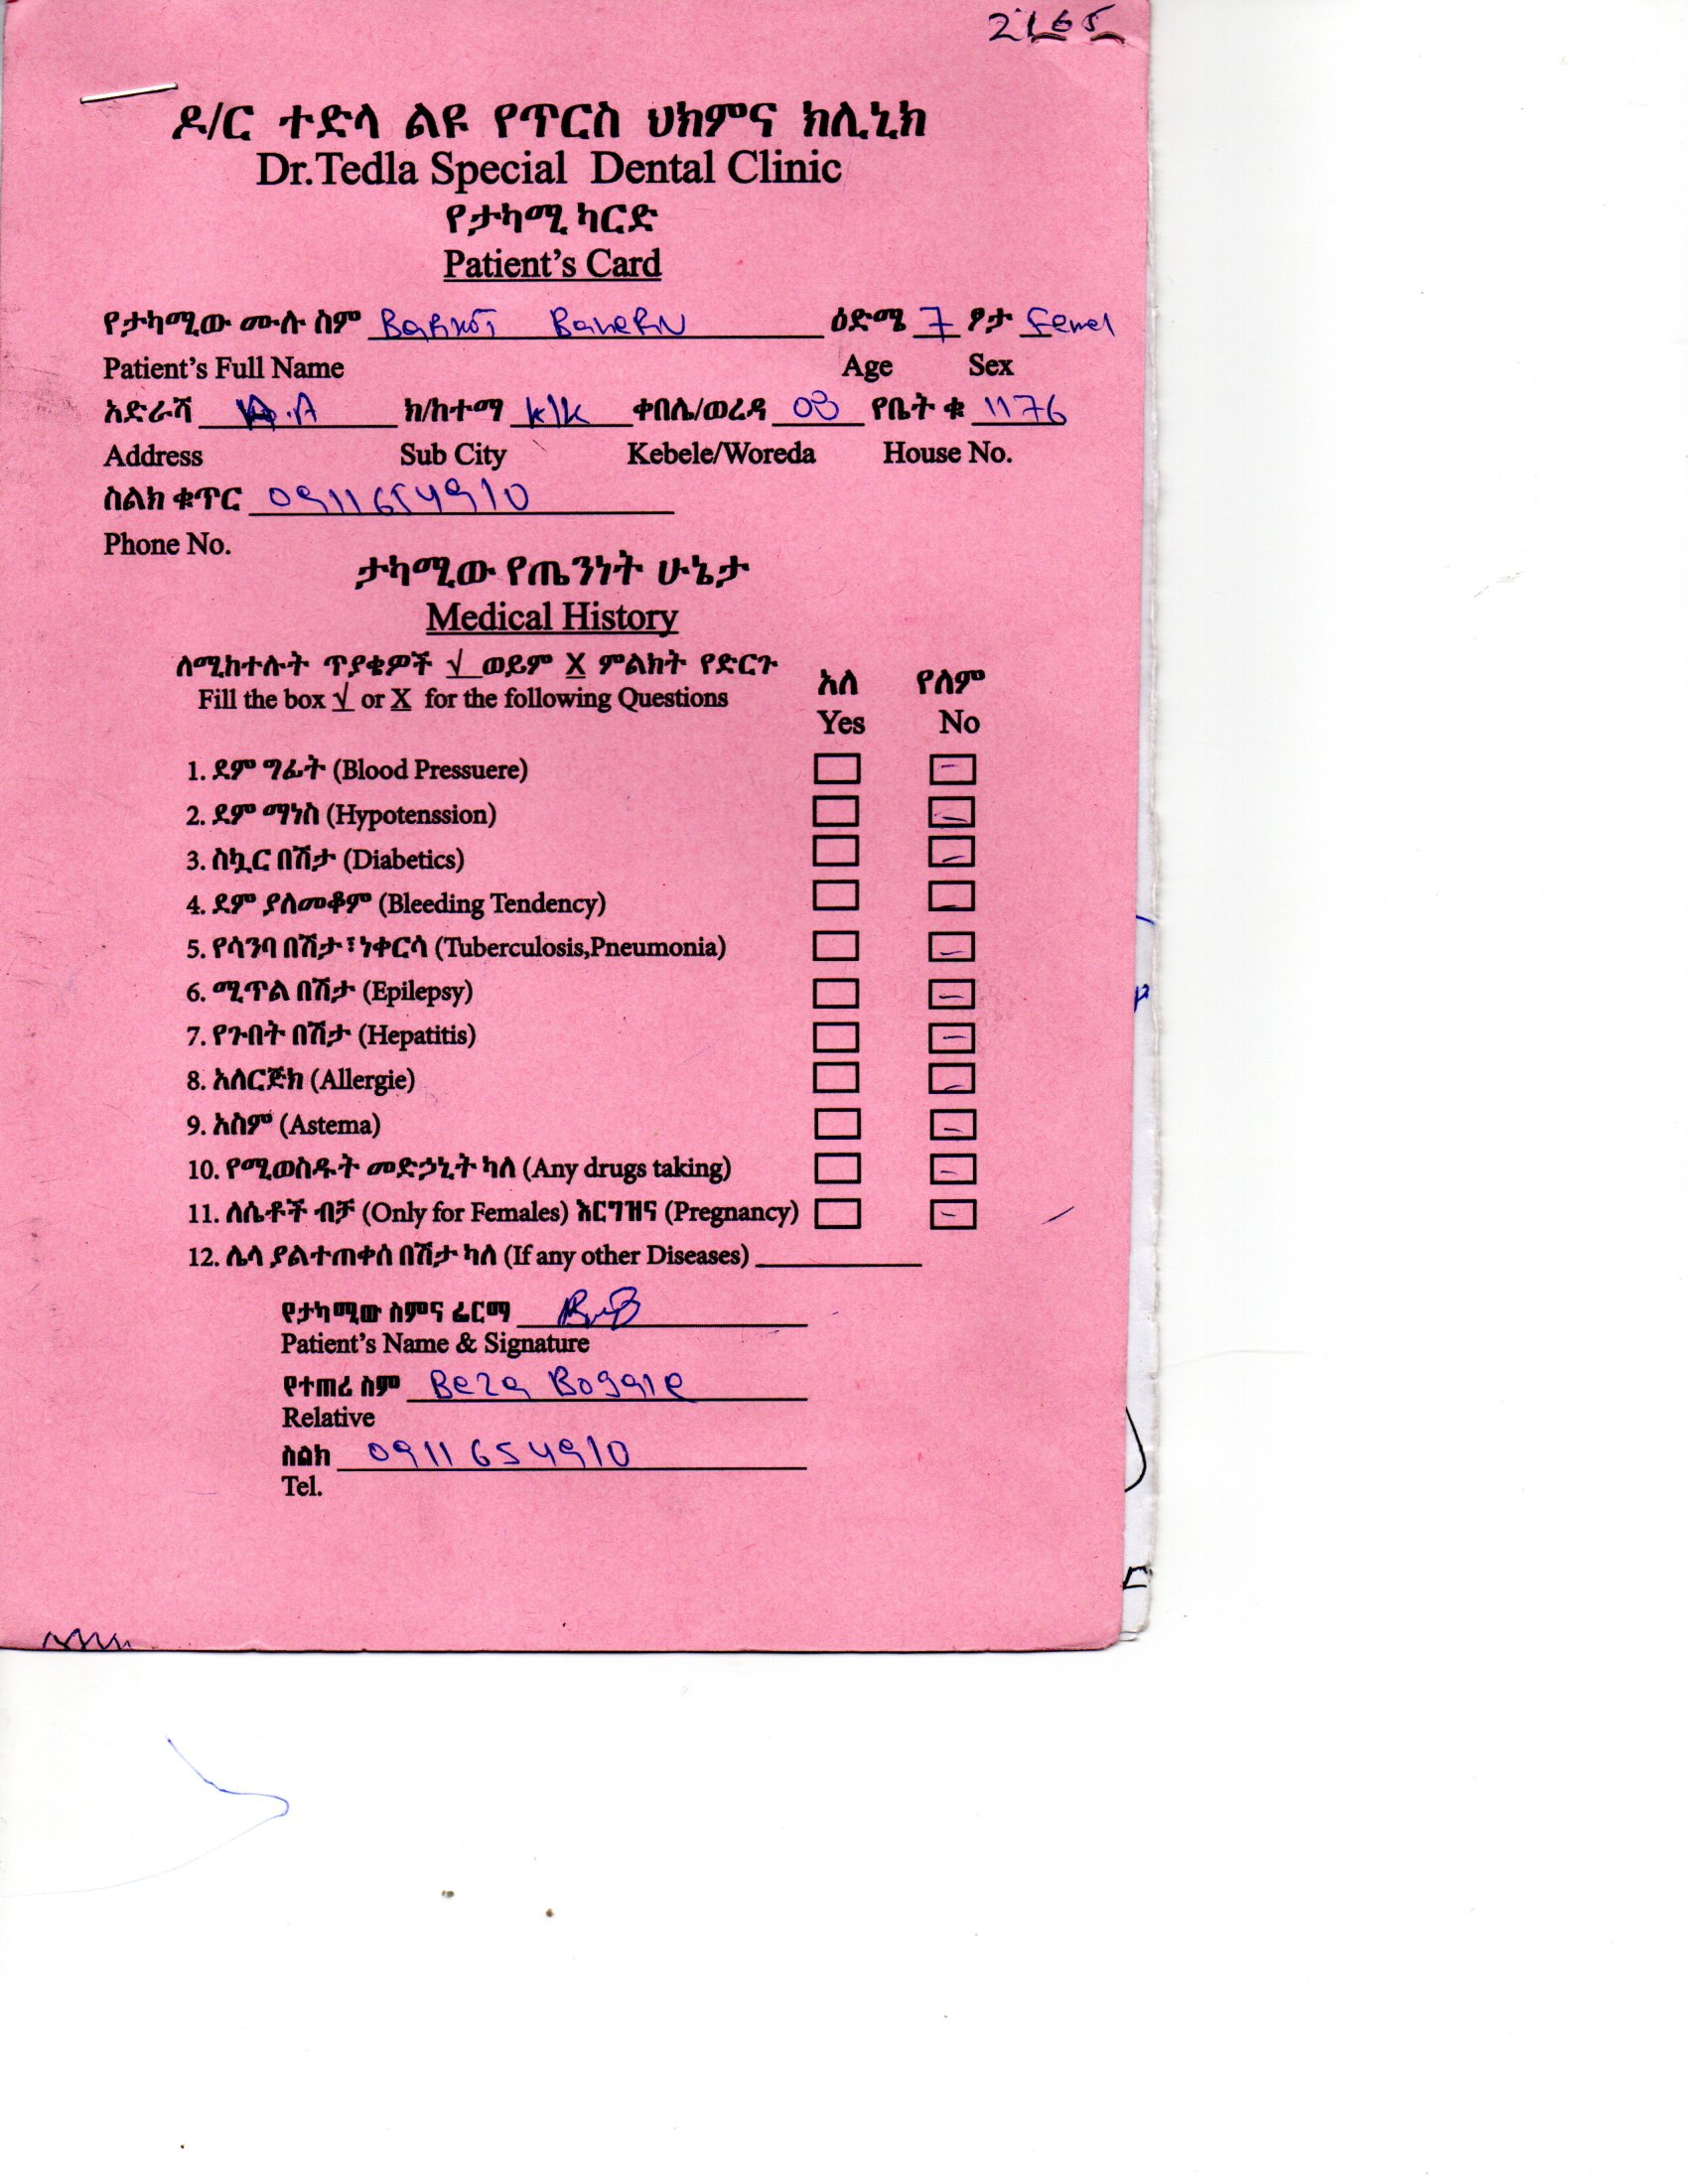 2165
ዶ/ር ተድላ ልዩ የጥርስ ህክምና ክሊኒክ
Dr.Tedla Special Dental Clinic
የታካሚ ካርድ
Patient's Card
የታካሚው ሙሉ ስም ዕድሜ 7 ፆታ Femel
Patient's Full Name Age Sex
አድራሻ A.A ክ/ከተማ k/k ቀበሌ/ወረዳ 03 የቤት ቁ 1176
Address Sub City Kebele/Woreda House No.
ስልክ ቁጥር 0911654910
Phone No.
ታካሚው የጤንነት ሁኔታ
Medical History
ለሚከተሉት ጥያቄዎች √ ወይም X ምልክት የድርጉ
Fill the box √ or X for the following Questions
አለ የለም
Yes No
1. ደም ግፊት (Blood Pressuere) -
2. ደም ማነስ (Hypotenssion) -
3. ስኳር በሽታ (Diabetics) -
4. ደም ያለመቆም (Bleeding Tendency) -
5. የሳንባ በሽታ፣ነቀርሳ (Tuberculosis,Pneumonia) -
6. ሚጥል በሽታ (Epilepsy) -
7. የጉበት በሽታ (Hepatitis) -
8. አለርጅክ (Allergie) -
9. አስም (Astema) -
10. የሚወስዱት መድኃኒት ካለ (Any drugs taking) -
11. ለሴቶች ብቻ (Only for Females) እርግዝና (Pregnancy) -
12. ሌላ ያልተጠቀሰ በሽታ ካለ (If any other Diseases)
የታካሚው ስምና ፊርማ
Patient's Name & Signature
የተጠሪ ስም Beza
Relative
ስልክ 0911654910
Tel.